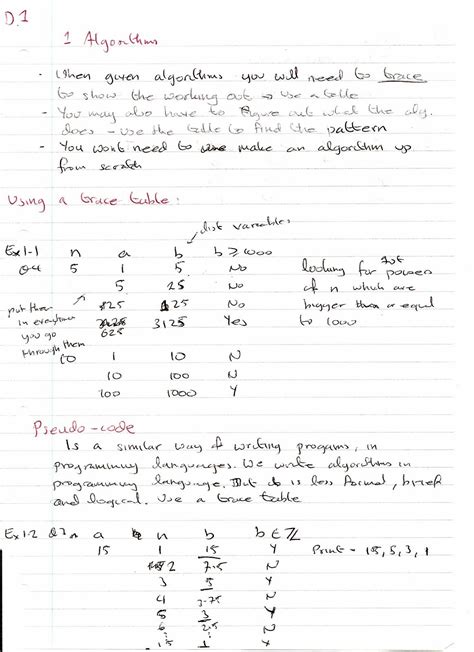 D.1
1 Algorithms
- When given algorithms you will need to trace
to show the working out → use a table
- You may also have to figure out what the alg.
does - use the table to find the pattern
- You wont need to make an algorithm up
from scratch
Using a trace table:
list variables
Ex 1-1 n a b b ≥ 1000
Q4 5 1 5 No looking for 1st power
5 25 No of n which are
put them 25 125 No bigger than or equal
in everytime 625 3125 Yes to 1000
you go
through them
10 1 10 N
10 100 N
100 1000 Y
Pseudo-code
Is a similar way of writing programs, in
programming languages. We write algorithms in
programming language. But is less formal, brief
and logical. Use a trace table
Ex 1.2 Q3 a n b b ∈ ℤ
15 1 15 Y Print - 15, 5, 3, 1
2 7.5 N
3 5 Y
4 3.75 N
5 3 Y
6 2.5 N
15 1 Y